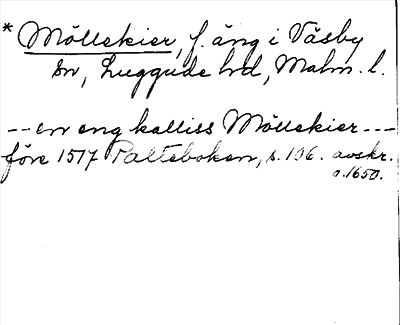 * Möllekier, f. äng i Väsby
sn, Luggude hd, Malm. l.
-- en eng kalliss Möllekier ---
före 1517 Palteboken, s. 106. avskr.
o. 1650.